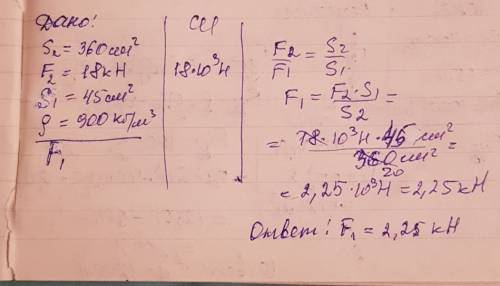 Дано:
S₂ = 360 см²
F₂ = 18 кН
S₁ = 45 см²
ρ = 900 кг/м³
F₁
СИ
18·10³ Н
F₂/F₁ = S₂/S₁
F₁ = F₂·S₁/S₂ =
= 18·10³ Н · 45 см²/360 см² =
20
= 2,25·10³ Н = 2,25 кН
Ответ: F₁ = 2,25 кН